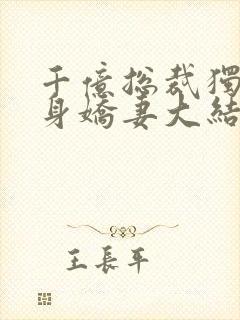 千億総裁獨
身嬌妻大結
王長平